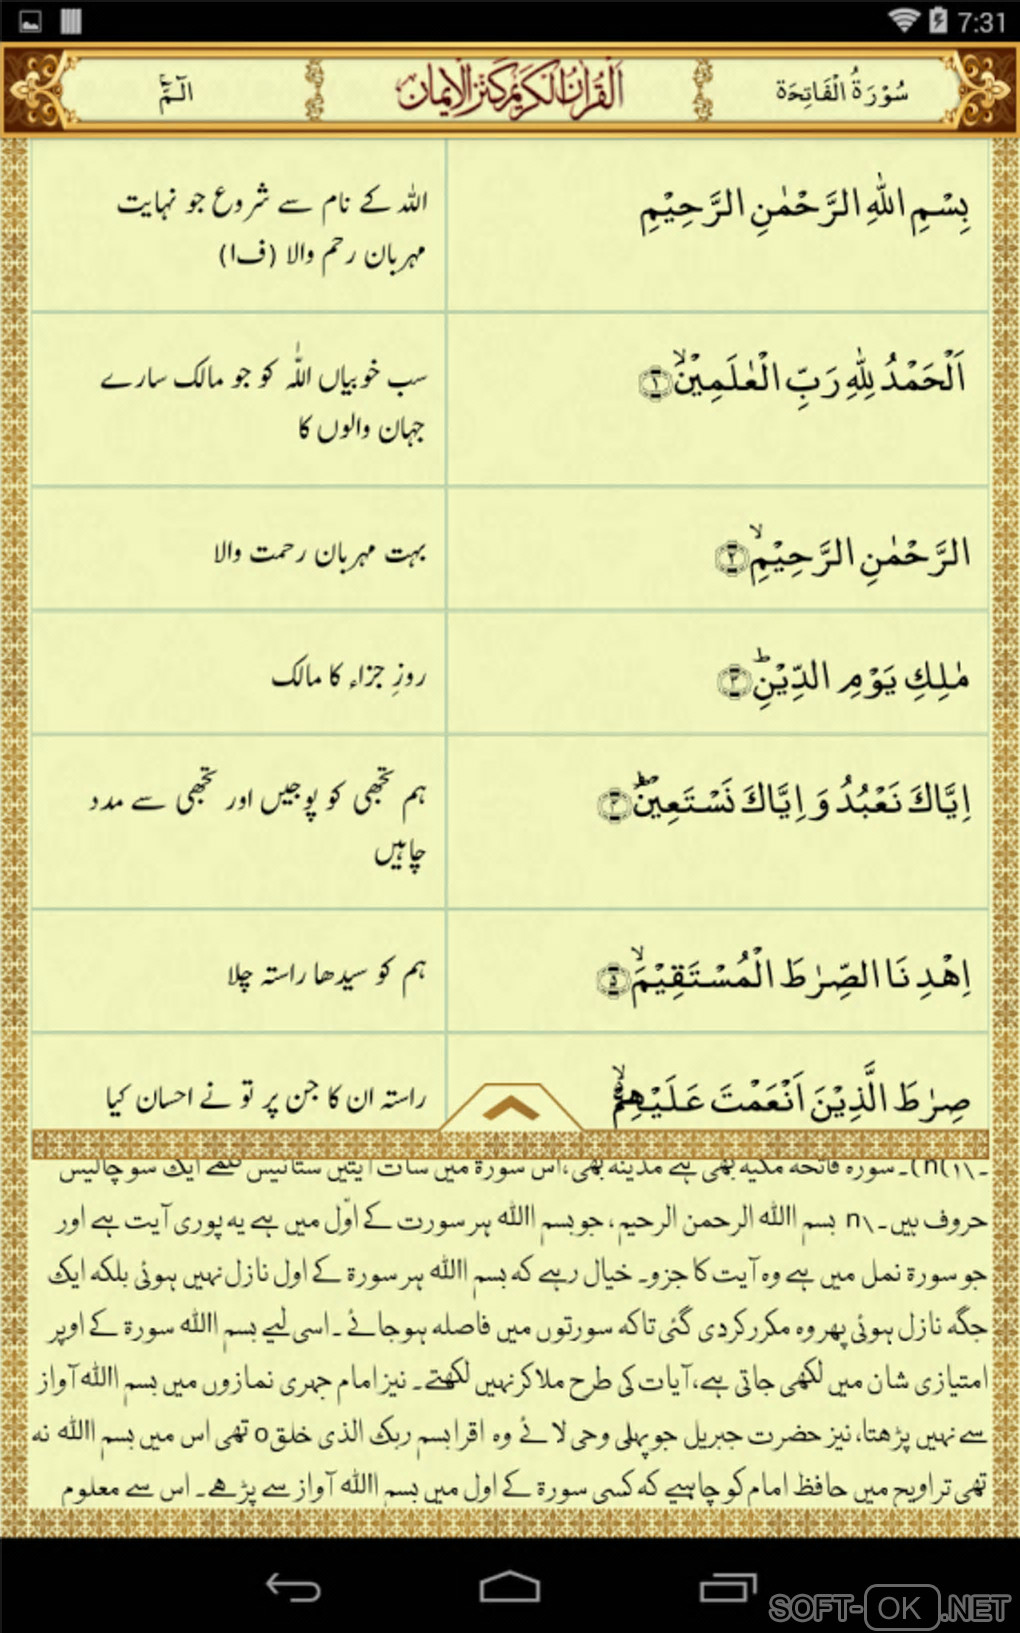 7:31
سُوْرَۃُ الْفَاتِحَة
اَلْقُرْاٰنُ الْكَرِيْم كَنْزُ الْاِيْمَان
الٓـمّٓ
بِسْمِ اللّٰهِ الرَّحْمٰنِ الرَّحِیْمِ
اللہ کے نام سے شروع جو نہایت
مہربان رحم والا (ف۱)
اَلْحَمْدُ لِلّٰهِ رَبِّ الْعٰلَمِیْنَۙ۝۱
سب خوبیاں اللّٰہ کو جو مالک سارے
جہان والوں کا
الرَّحْمٰنِ الرَّحِیْمِۙ۝۲
بہت مہربان رحمت والا
مٰلِكِ یَوْمِ الدِّیْنِؕ۝۳
روزِ جزاء کا مالک
اِیَّاكَ نَعْبُدُ وَ اِیَّاكَ نَسْتَعِیْنُؕ۝۴
ہم تجھی کو پوجیں اور تجھی سے مدد
چاہیں
اِهْدِنَا الصِّرٰطَ الْمُسْتَقِیْمَۙ۝۵
ہم کو سیدھا راستہ چلا
صِرٰطَ الَّذِیْنَ اَنْعَمْتَ عَلَیْهِمْۙ۬
راستہ ان کا جن پر تو نے احسان کیا
۔\n(۱)۔سورہ فاتحہ مکیہ بھی ہے مدینہ بھی،اس سورۃ میں سات آیتیں ستائیس کلمے ایک سو چالیس
حروف ہیں۔\n بسم اﷲ الرحمن الرحیم، جو بسم اﷲ ہر سورت کے اوّل میں ہے یہ پوری آیت ہے اور
جو سورۃ نمل میں ہے وہ آیت کا جزو۔ خیال رہے کہ بسم اﷲ ہر سورۃ کے اول نازل نہیں ہوئی بلکہ ایک
جگہ نازل ہوئی پھر وہ مکرر کر دی گئی تاکہ سورتوں میں فاصلہ ہوجائے ۔اسی لیے بسم اﷲ سورۃ کے اوپر
امتیازی شان میں لکھی جاتی ہے،آیات کی طرح ملا کر نہیں لکھتے۔ نیز امام جہری نمازوں میں بسم اﷲ آواز
سے نہیں پڑھتا، نیز حضرت جبریل جو پہلی وحی لائے وہ اقرا بسم ربک الذی خلق o تھی اس میں بسم اﷲ نہ
تھی تراویح میں حافظ امام کو چاہیے کہ کسی سورۃ کے اول میں بسم اﷲ آواز سے پڑھے۔ اس سے معلوم
SOFT-OK.NET